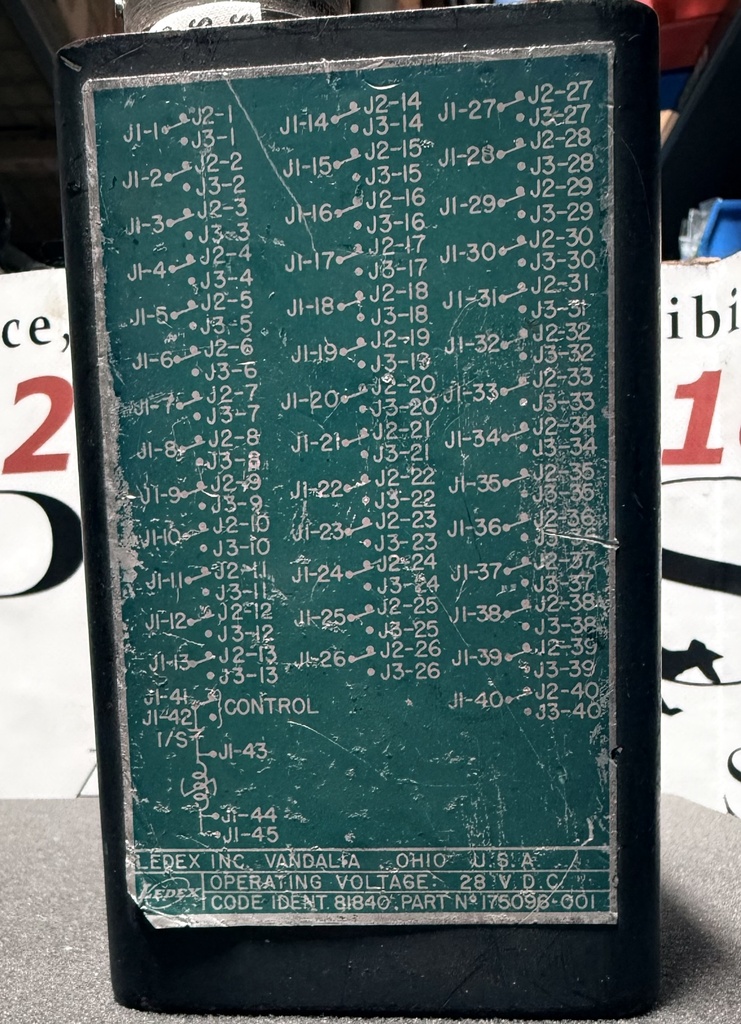 J1-1 J2-1
J3-1
J1-2 J2-2
J3-2
J1-3 J2-3
J3-3
J1-4 J2-4
J3-4
J1-5 J2-5
J3-5
J1-6 J2-6
J3-6
J1-7 J2-7
J3-7
J1-8 J2-8
J3-8
J1-9 J2-9
J3-9
J1-10 J2-10
J3-10
J1-11 J2-11
J3-11
J1-12 J2-12
J3-12
J1-13 J2-13
J3-13
J1-41
J1-42
CONTROL
I/S
J1-43
J1-44
J1-45
J1-14 J2-14
J3-14
J1-15 J2-15
J3-15
J1-16 J2-16
J3-16
J1-17 J2-17
J3-17
J1-18 J2-18
J3-18
J1-19 J2-19
J3-19
J1-20 J2-20
J3-20
J1-21 J2-21
J3-21
J1-22 J2-22
J3-22
J1-23 J2-23
J3-23
J1-24 J2-24
J3-24
J1-25 J2-25
J3-25
J1-26 J2-26
J3-26
J1-27 J2-27
J3-27
J1-28 J2-28
J3-28
J1-29 J2-29
J3-29
J1-30 J2-30
J3-30
J1-31 J2-31
J3-31
J1-32 J2-32
J3-32
J1-33 J2-33
J3-33
J1-34 J2-34
J3-34
J1-35 J2-35
J3-35
J1-36 J2-36
J3-36
J1-37 J2-37
J3-37
J1-38 J2-38
J3-38
J1-39 J2-39
J3-39
J1-40 J2-40
J3-40
LEDEX INC. VANDALIA OHIO U.S.A.
LEDEX
OPERATING VOLTAGE 28 V.D.C.
CODE IDENT. 81840 PART Nº 175096-001
ce,
2
ibi
1